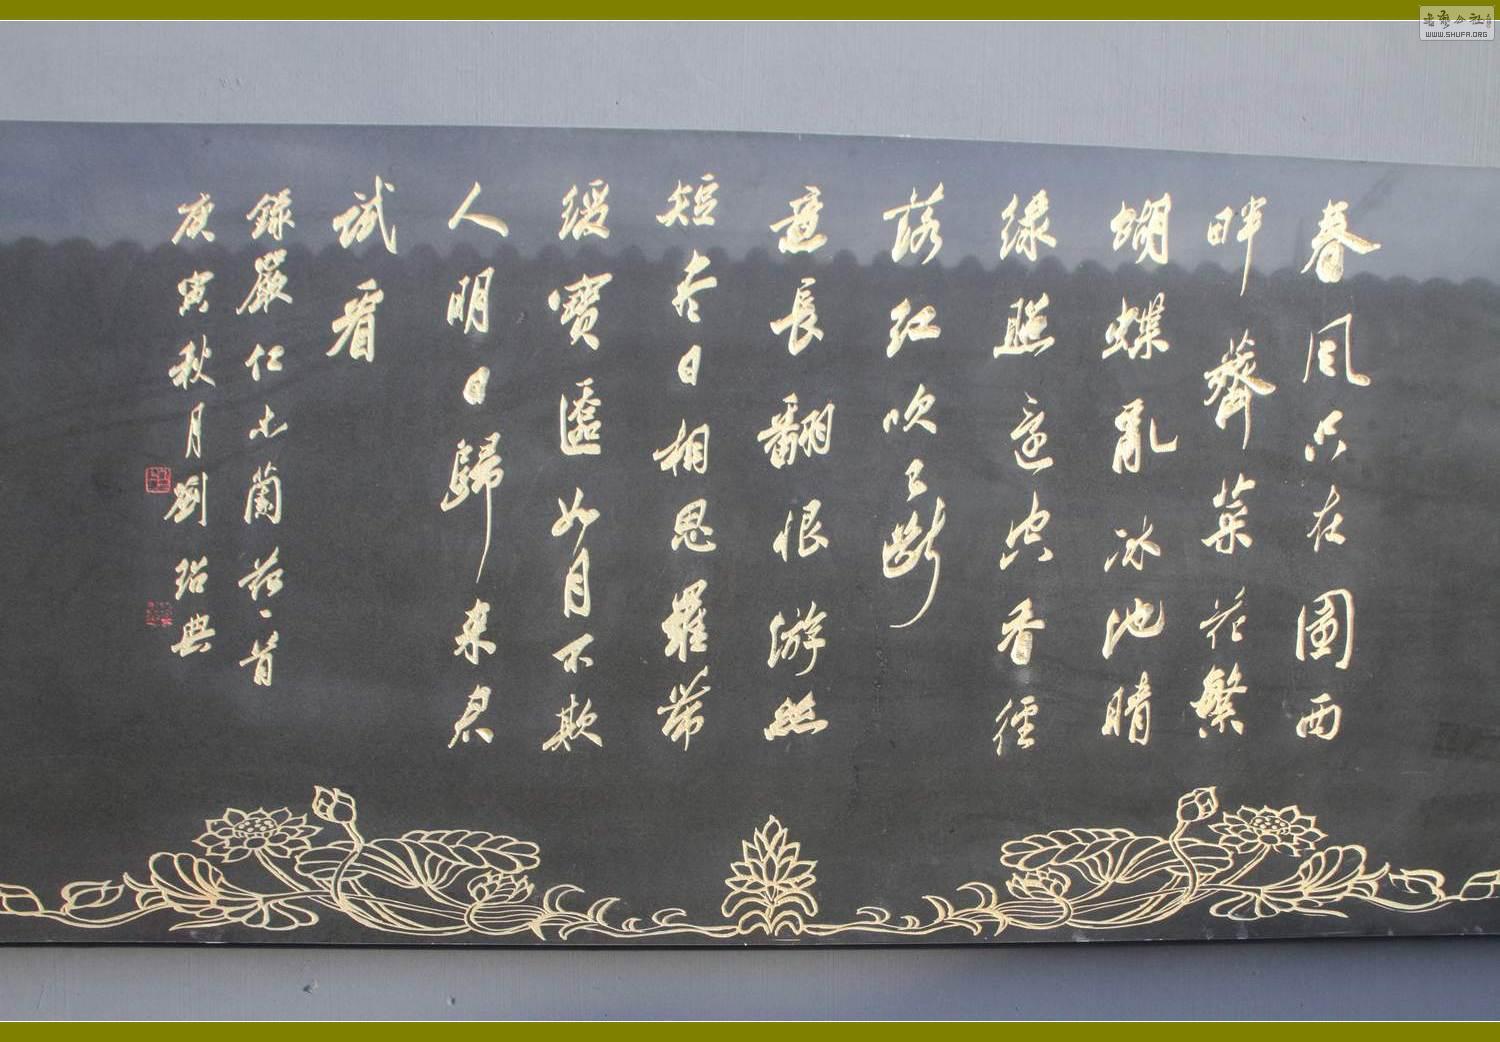 春風只在園西
畔薺菜花繁
蝴蝶亂冰池晴
綠照還空香徑
落紅吹已斷
意長翻恨游絲
短盡日相思羅帶
緩寶匳如月不欺
人明日歸來君
試看
錄嚴仁木蘭花一首
庚寅秋月劉紹典
WWW.SHUFA.ORG